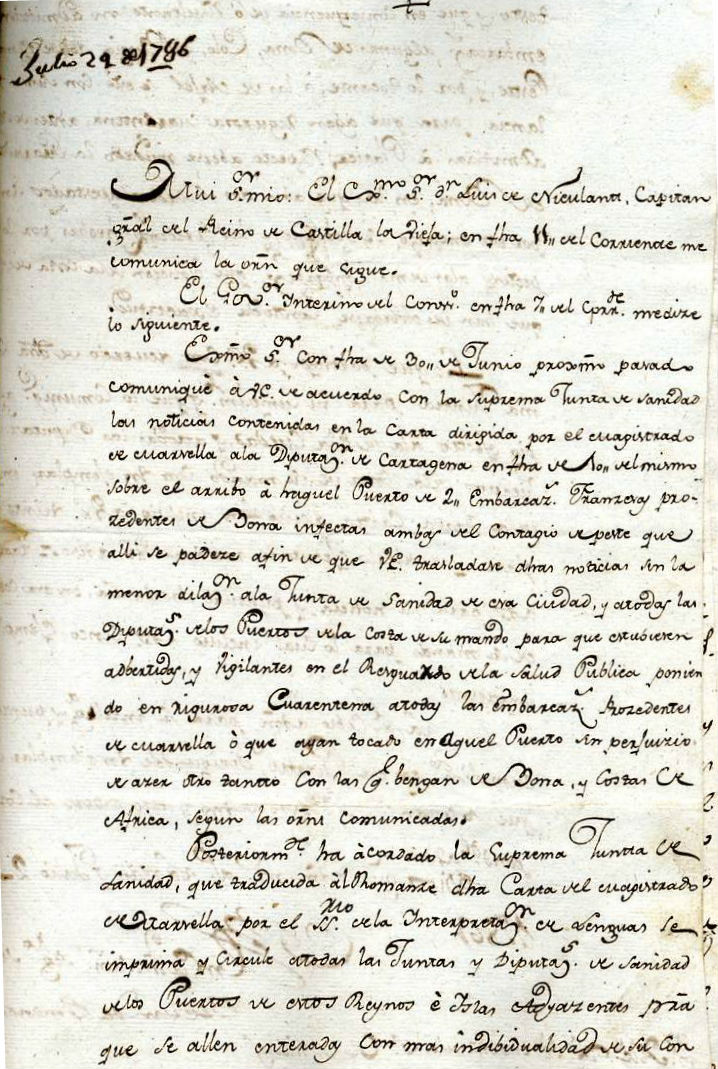 Julio 29 de 1786
Mui Sor. mio: El Exmo. Sor. Dn. Luis de Niculant, Capitan
Gral del Reino de Castilla la Viefa; en fha 11,, del Corriente me
comunica la orn que sigue.
El Gov.or Interino del Consº. en fha 7,, del Corrte. me dize
lo siguiente.
Exmo Sor. Con fha de 30,, de Junio proxmo pasado
comuniquè à VE. de acuerdo con la suprema Junta de sanidad
las noticias contenidas en la Carta dirigida por el magistrado
de Marsella ala Diputaon. de Cartagena en fha de 10,, del mismo
sobre el arribo à haquel Puerto de 2,, Embarcazs. Franzesas pro-
zedentes de Bona infectas ambas del Contagio de peste que
alli se padeze afin de que VE. trasladase dhas noticias sin la
menor dilaon. ala Junta de Sanidad de esa Ciudad, y atodas las
Diputas. delos Puertos dela Costa de su mando para que estubiesen
adbertidas, y Vigilantes en el Resguardo dela salud Publica ponien
do en rigurosa Cuarentena atodas las Embarcazs. Prozedentes
de Marsella ò que ayan tocado en Aquel Puerto sin perjuizio
de azer otro tantto Con las q.e bengan de Bona, y Costas de
Africa, segun las orns comunicadas.
Posteriormte. ha àcordado la Suprema Junta de
Sanidad, que traducida àl Romanze dha Carta del magistrado
de Marsella por el SSrio. dela Interpretaon. de Lenguas se
imprima y Circule atodas las Juntas y Diputas. de sanidad
delos Puertos de estos Reynos è Islas Adyazentes pra
que se allen enterados con mas indibidualidad de su con